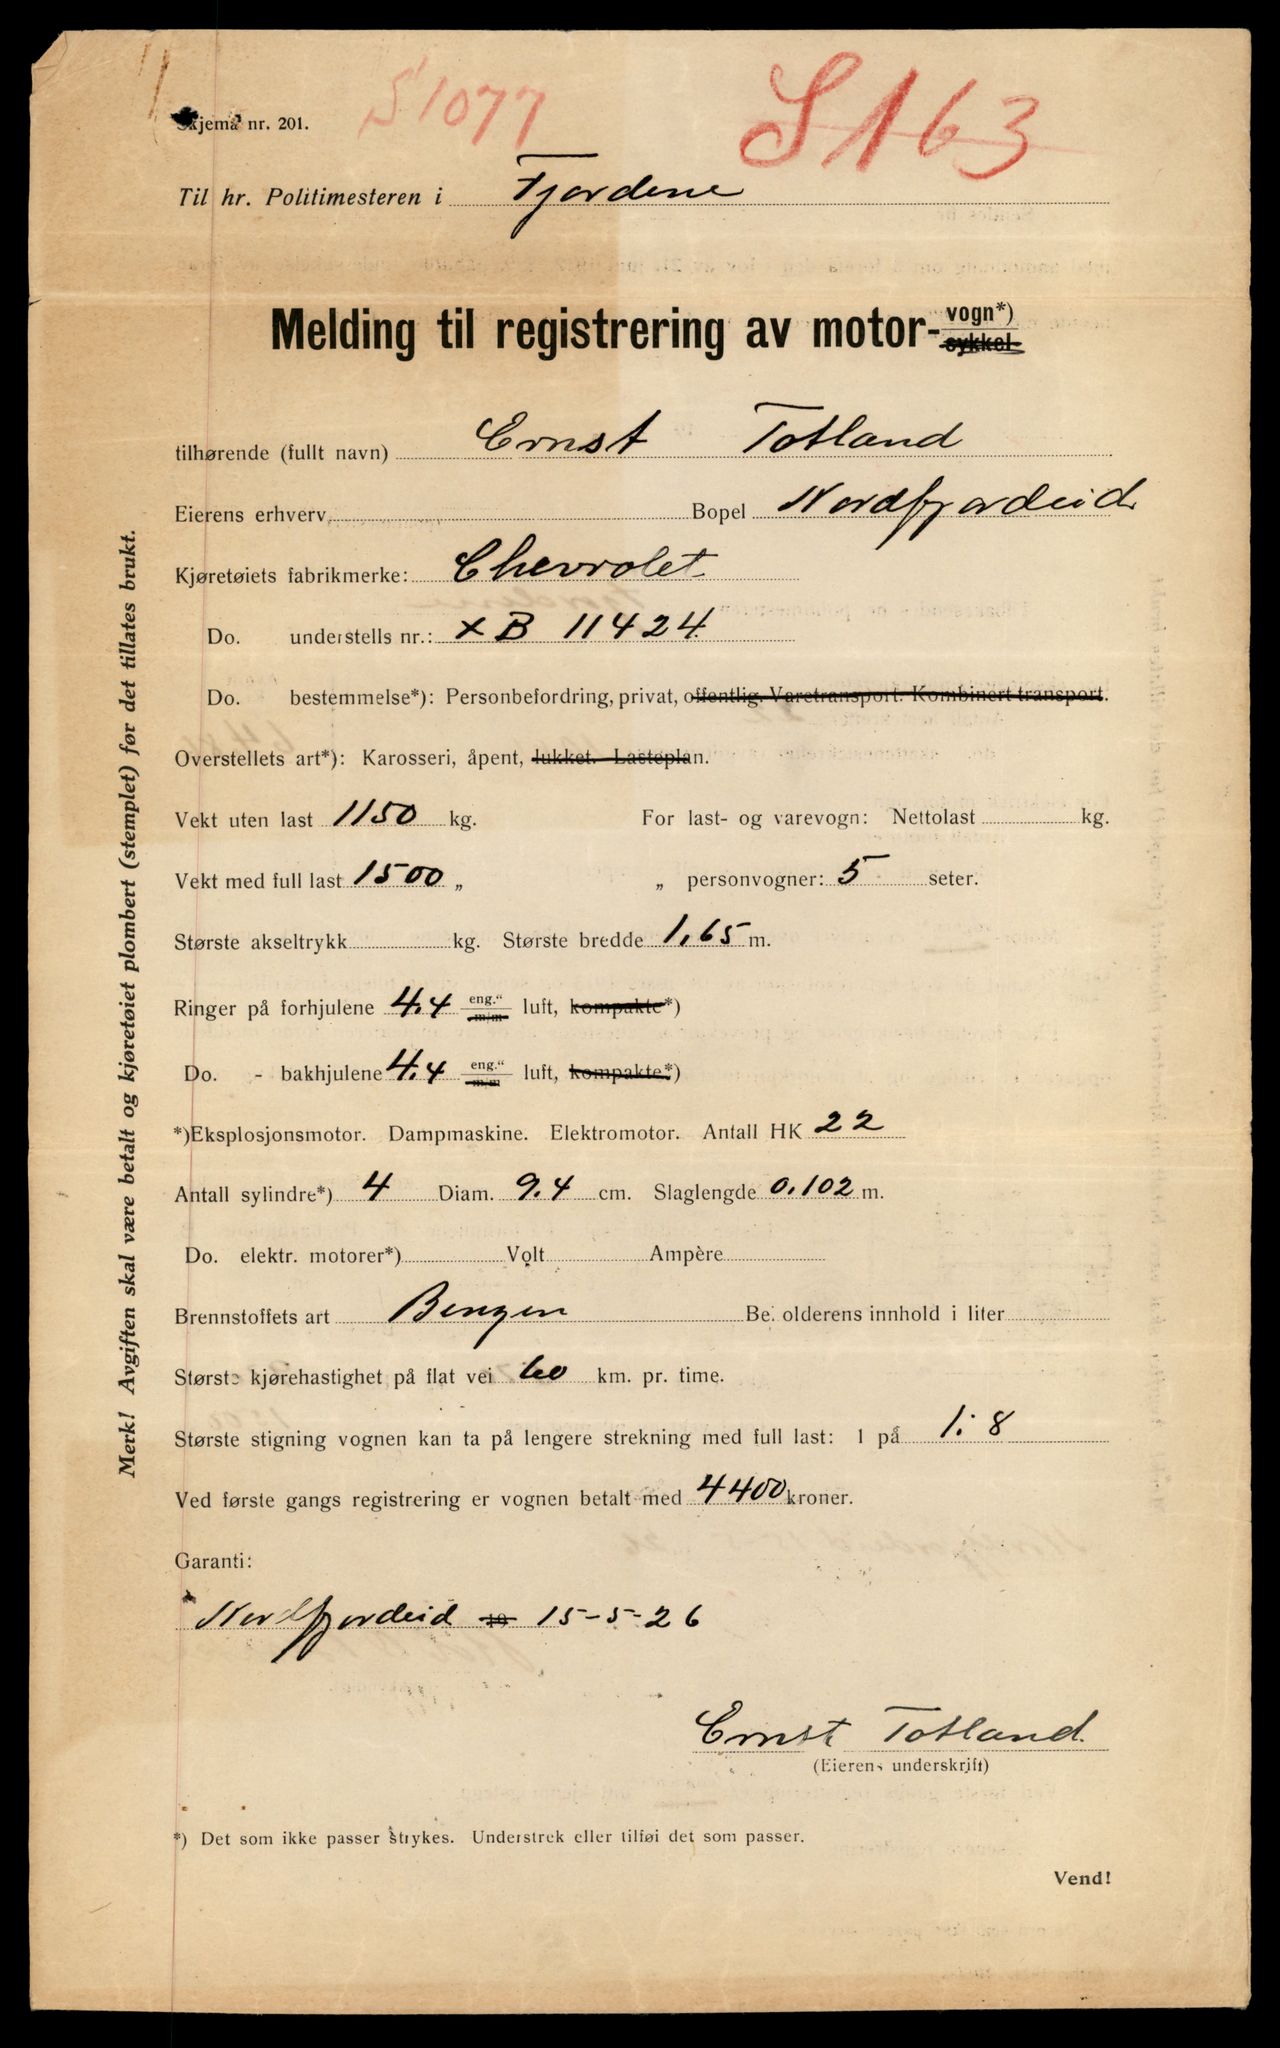 S 1077
S 163
Skjema nr. 201.
Til hr. Politimesteren i Fjordene
Melding til registrering av motor-vogn*)
sykkel
tilhørende (fullt navn) Ernst Totland
Eierens erhverv Bopel Nordfjordeid
Kjøretøiets fabrikmerke: Chevrolet
Do. understells nr.: XB 11424
Do. bestemmelse*): Personbefordring, privat, offentlig. Varetransport. Kombinert transport.
Overstellets art*): Karosseri, åpent, lukket. Lasteplan.
Vekt uten last 1150 kg. For last- og varevogn: Nettolast kg.
Vekt med full last 1500 „ „ personvogner: 5 seter.
Største akseltrykk kg. Største bredde 1,65 m.
Ringer på forhjulene 4.4 eng.“ m/m luft, kompakte*)
Do. - bakhjulene 4.4 eng.“ m/m luft, kompakte*)
*) Eksplosjonsmotor. Dampmaskine. Elektromotor. Antall HK 22
Antall sylindre*) 4 Diam. 9.4 cm. Slaglengde 0.102 m.
Do. elektr. motorer*) Volt Ampère
Brennstoffets art Benzin Be. olderens innhold i liter
Største kjørehastighet på flat vei 60 km. pr. time.
Største stigning vognen kan ta på lengere strekning med full last: 1 på 1:8
Ved første gangs registrering er vognen betalt med 4400 kroner.
Garanti:
Nordfjordeid 19 15-5-26
Ernst Totland
(Eierens underskrift)
*) Det som ikke passer strykes. Understrek eller tilføi det som passer.
Vend!
Merk! Avgiften skal være betalt og kjøretøiet plombert (stemplet) før det tillates brukt.